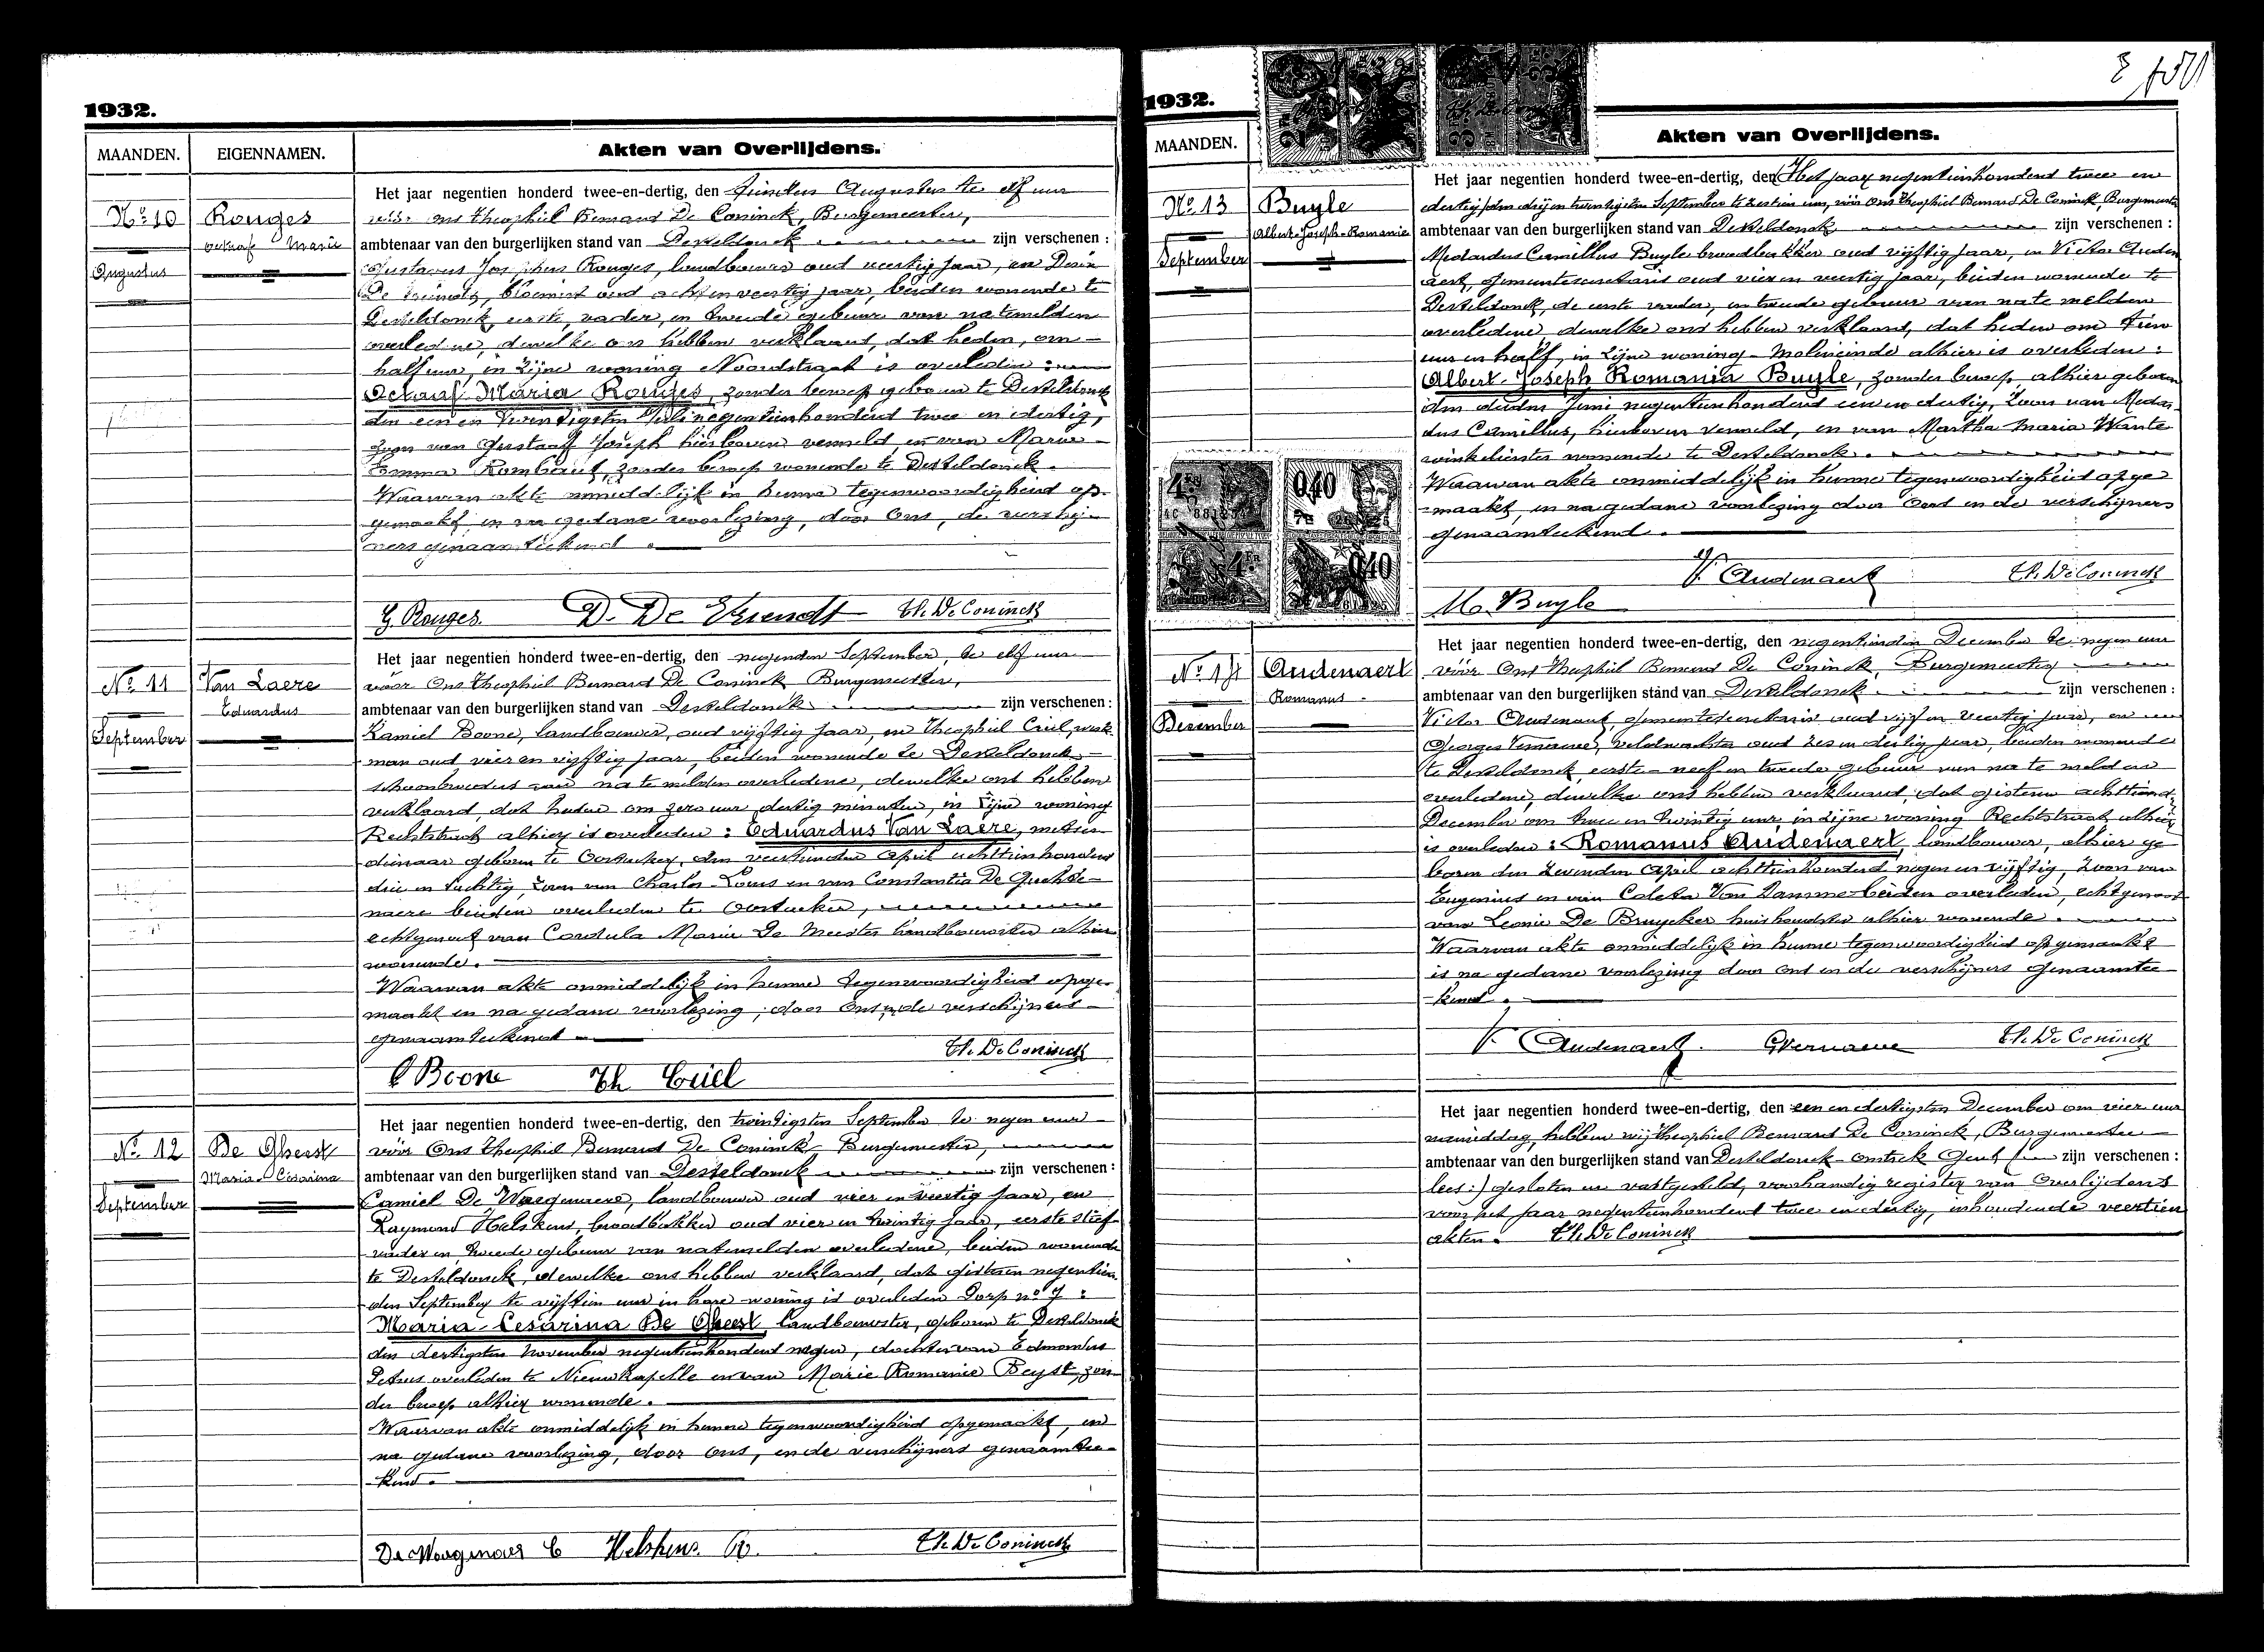 1932.
MAANDEN. EIGENNAMEN. Akten van Overlijdens.
Het jaar negentien honderd twee-en-dertig, den Augustus te elf uur
No 10 Rouges vóór ons Theophiel Bernard De Coninck, Burgemeester,
Octaaf Maria ambtenaar van den burgerlijken stand van Desteldonck zijn verschenen :
Augustus Gustavus Josephus Rouges, landbouwer oud veertig jaar, en
De Vriendt, bloemist oud acht en veertig jaar, beiden wonende te
Desteldonck, eerste, vader, en tweede gebuur van natemelden
overledene, dewelke ons hebben verklaard, dat heden, om
half uur, in zijne woning Noordstraat is overleden :
Octaaf Maria Rouges, zonder beroep geboren te Desteldonck
den een en twindigsten Juli negentienhonderd twee en dertig,
zoon van Gustaaf Joseph hierboven vermeld, en van Marie
Emma Rombaut, zonder beroep wonende te Desteldonck.
Waarvan akte onmiddelijk in hunne tegenwoordigheid op-
gemaakt, en na gedane voorlezing, door Ons, de verschij-
ners genaamteekend.
G. Rouges. D. De Vriendt Th. De Coninck
Het jaar negentien honderd twee-en-dertig, den negenden September, te elf uur
No 11 Van Laere vóór Ons Theophiel Bernard De Coninck Burgemeester,
Eduardus ambtenaar van den burgerlijken stand van Desteldonck zijn verschenen :
September Kamiel Boone, landbouwer, oud vijftig jaar, en Theophiel Criel, werk-
man oud vier en vijftig jaar, beiden wonende te Desteldonck,
schoonbroeders van na te melden overledene, dewelke ons hebben
verklaard, dat heden om zero uur dertig minuten, in zijne woning
Rechtstraat alhier is overleden : Eduardus Van Laere, metser
dienaar geboren te Oostacker, den veertienden April achttienhonderd
drie en tachtig, zoon van Charles-Louis en van Constantia De
naere beiden overleden te Oostacker,
echtgenoot van Cordula Maria De Meester landbouwster alhier
wonende.
Waarvan akte onmiddelijk in hunne tegenwoordigheid opge-
maakt en na gedane voorlezing, door Ons, de verschijners
genaamteekend
C Boone Th Criel Th. De Coninck
Het jaar negentien honderd twee-en-dertig, den twindigsten September te negen uur
No 12 De Gheest vóór Ons Theophiel Bernard De Coninck Burgemeester,
Maria-Cesarina ambtenaar van den burgerlijken stand van Desteldonck zijn verschenen :
September Camiel De Waegenaere, landbouwer oud vier en veertig jaar, en
Raymond Helskens, broodbakker oud vier en twintig jaar, eerste stief-
vader en tweede gebuur van natemelden overledene, beiden wonende
te Desteldonck, dewelke ons hebben verklaard, dat gisteren negentien-
den September te vijftien uur in hare woning is overleden Dorp no 7 :
Maria-Cesarina De Gheest landbouwster, geboren te Desteldonck
den dertigsten November negentienhonderd negen, dochter van Edmondus
Petrus overleden te Nieuwkapelle en van Marie Romanie Beyst, zon-
der beroep alhier wonende.
Waarvan akte onmiddelijk in hunne tegenwoordigheid opgemaakt, en
na gedane voorlezing, door Ons, en de verschijners genaamtee-
kend.
De Waegenaer C Helskens R. Th. De Coninck
1932.
MAANDEN. Akten van Overlijdens.
Het jaar negentien honderd twee-en-dertig, den Het jaar negentienhonderd twee en
No 13 Buyle dertig, den drij en twintigsten September te zestien uur, vóór Ons Theophiel Bernard De Coninck, Burgemeester
Albert-Joseph-Romanie ambtenaar van den burgerlijken stand van Desteldonck zijn verschenen :
September Medardus Camillus Buyle broodbakker oud vijftig jaar, en Victor Auden
aert, gemeentesecretaris oud vier en veertig jaar, beiden wonende te
Desteldonck, de eerste vader, en tweede gebuur van na te melden
overledene, dewelke ons hebben verklaard, dat heden om tien
uur en half, in zijne woning Moleneinde alhier is overleden :
Albert-Joseph Romania Buyle, zonder beroep alhier geboren
den derden Juni negentienhonderd een en dertig, zoon van Medar-
dus Camillus, hierboven vermeld, en van Martha Maria Wante
winkelierster wonende te Desteldonck.
Waarvan akte onmiddelijk in hunne tegenwoordigheid opge
maakt, en na gedane voorlezing door Ons en de verschijners
genaamteekend.
4FR 0,40
4FR 0,40
M. Buyle V. Audenaert Th. De Coninck
Het jaar negentien honderd twee-en-dertig, den negentienden December te negen uur
No 14 Audenaert vóór Ons Theophiel Bernard De Coninck, Burgemeester
Romanus ambtenaar van den burgerlijken stand van Desteldonck zijn verschenen :
December Victor Audenaert, gemeentesecretaris oud vijf en veertig jaar, en
Georges Vernaeve, veldwachter oud zes en dertig jaar, beiden wonende
te Desteldonck, eerste neef en tweede gebuur van na te melden
overledene, dewelke ons hebben verklaard, dat gisteren achttiend
December om twee en twintig uur, in zijne woning Rechtstraat alhier
is overleden : Romanus Audenaert, landbouwer, alhier ge
boren den zevenden April achttienhonderd negen en vijftig, zoon van
Eugenius en van Coleta Van Damme beiden overleden, echtgenoot
van Leonie De Bruycker huishoudster alhier wonende.
Waarvan akte onmiddelijk in hunne tegenwoordigheid opgemaakt
is na gedane voorlezing door Ons en de verschijners genaamtee
kend.
V. Audenaert. GVernaeve Th. De Coninck
Het jaar negentien honderd twee-en-dertig, den een en dertigsten December om vier uur
namiddag, hebben wij Theophiel Bernard De Coninck, Burgemeester
ambtenaar van den burgerlijken stand van Desteldonck omtrek Gent zijn verschenen :
lees :) gesloten en vastgesteld, voorhandig register van Overlijdens
voor het jaar negentienhonderd twee en dertig, inhoudende veertien
akten. Th. De Coninck